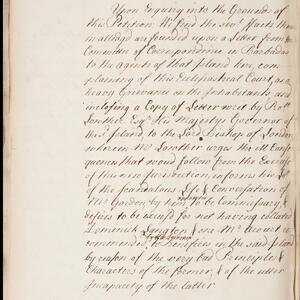 Upon Enquiry into the Grounds of
this Petition We find the sev.ll ffacts there
in alledg'd are founded upon a Letter from the
Committee of Correspondence in Barbados
to the agents of that Island here, com-
plaining of this Ecclesiastical Court, as a
heavy Grievance on the Inhabitants, and
inclosing a Copy of Letter writ by Rob.t
Lowther Esq.r his Majesty's Governor of
the s.d Island to the Lord Bishop of London
wherein Mr. Lowther urges the ill Conse-
quences that would follow from the Exercise
of this new jurisdiction, informs his Lo.p
of the scandalous Life & Conversation of
Mr. Gordon, by him appointed to be Commissary, &
desires to be excus'd for not having collated
Dominick Langton & one Mr. Acourt re-
commended by his Lordship to Benefices in the said Island
by reason of the very bad Principles &
Characters of the former, & of the utter
Incapacity of the latter